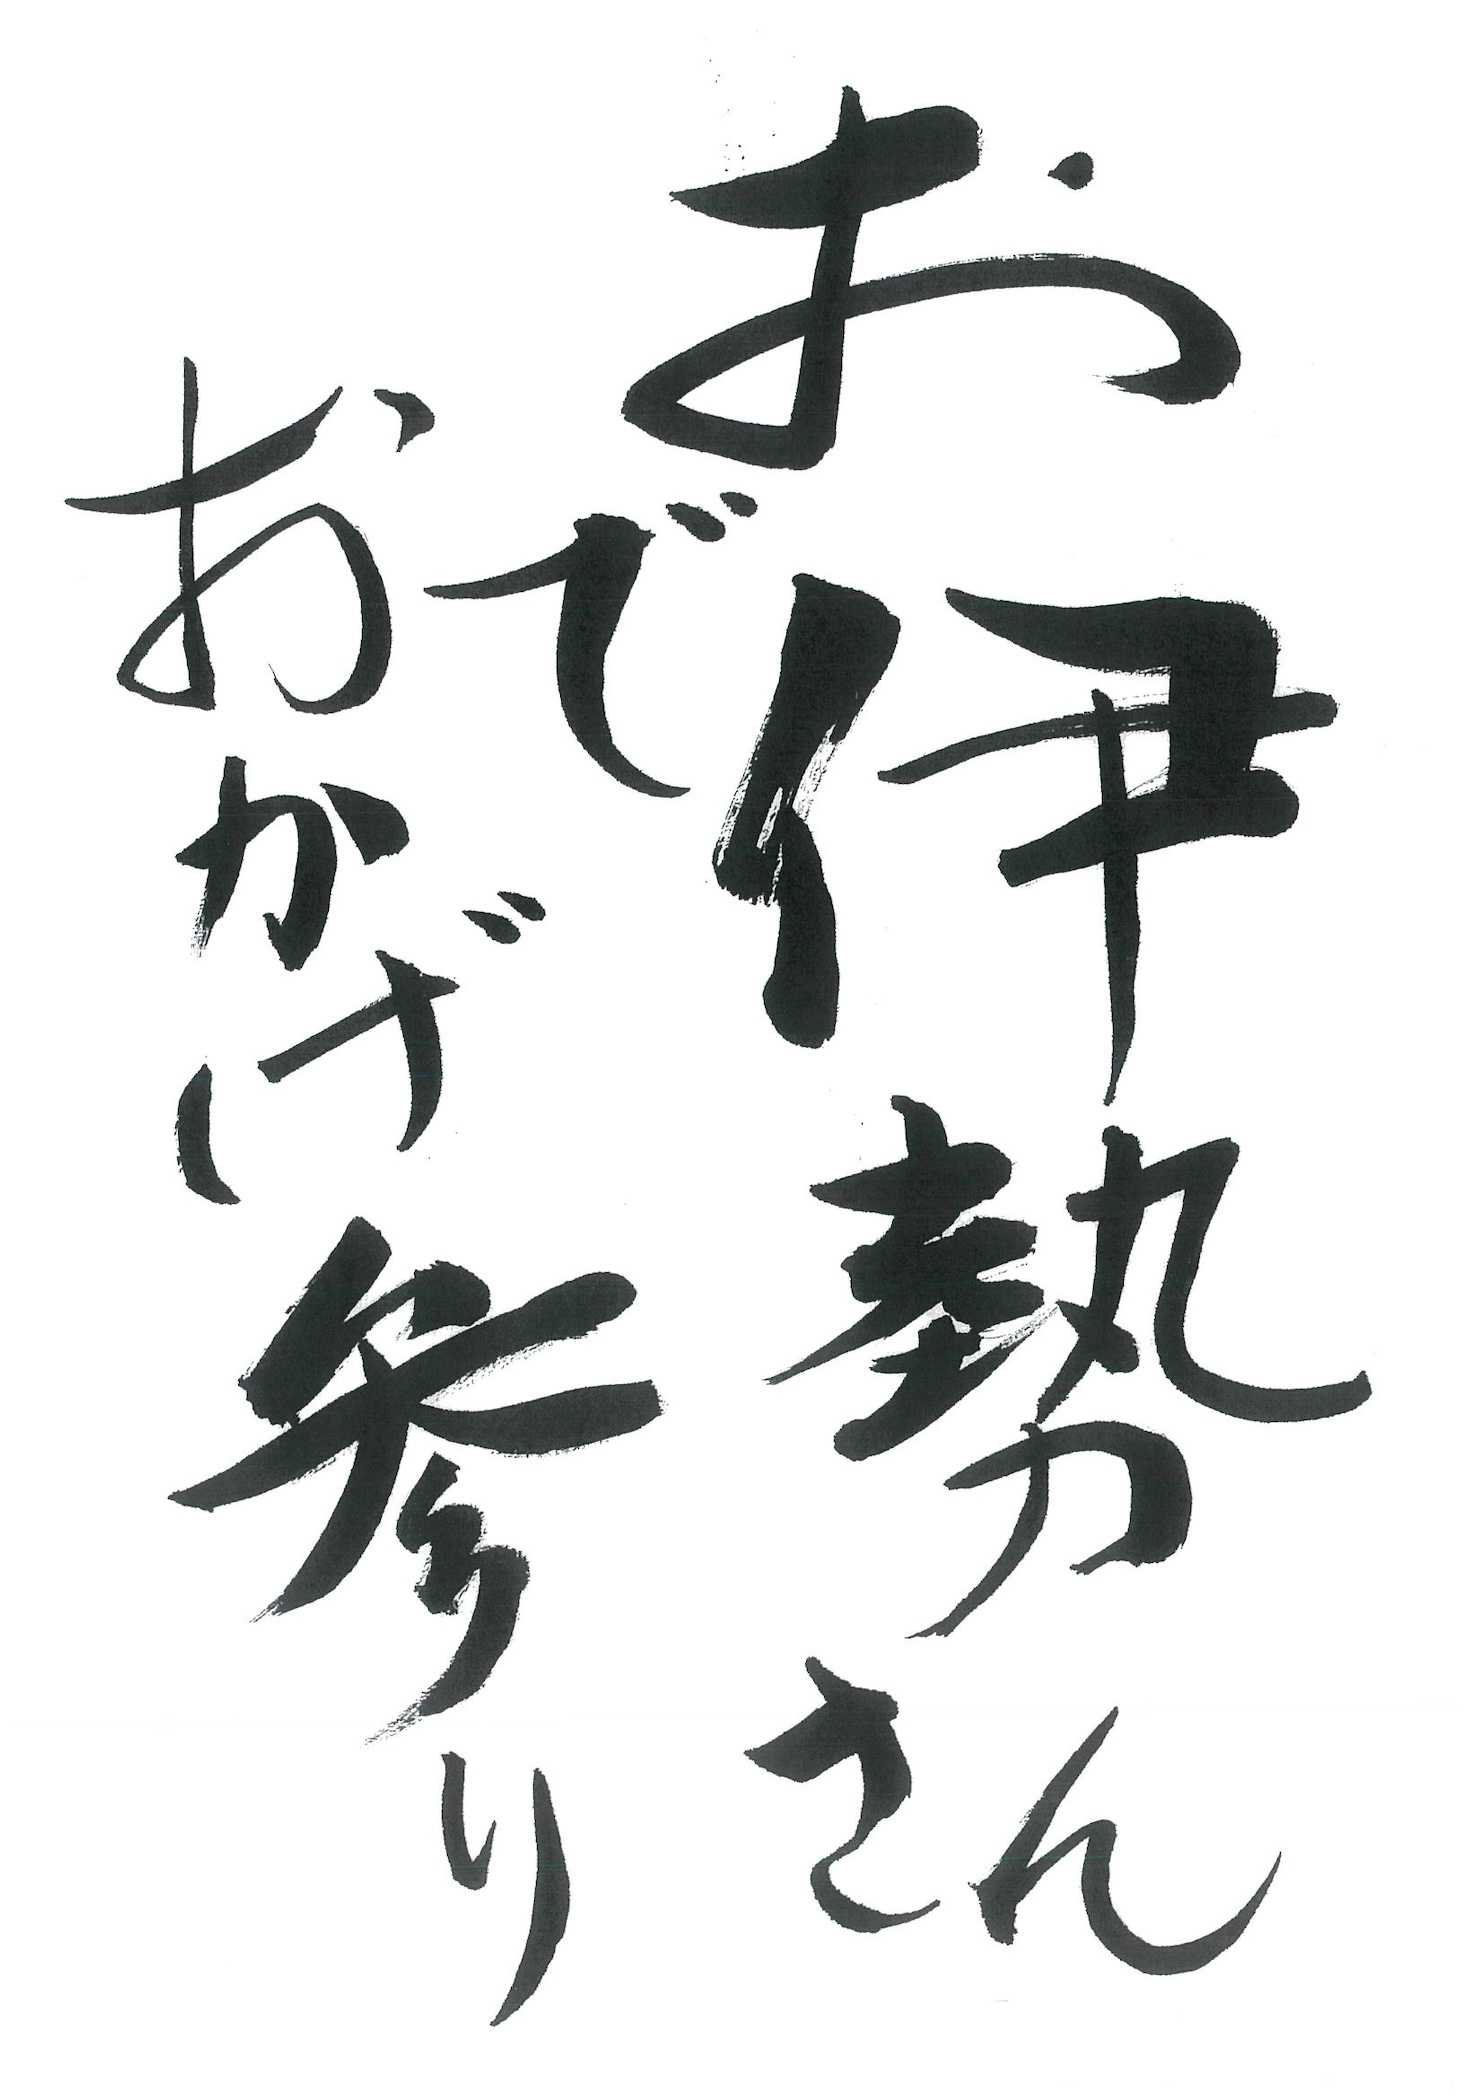 お伊勢さん
で
おかげ参り